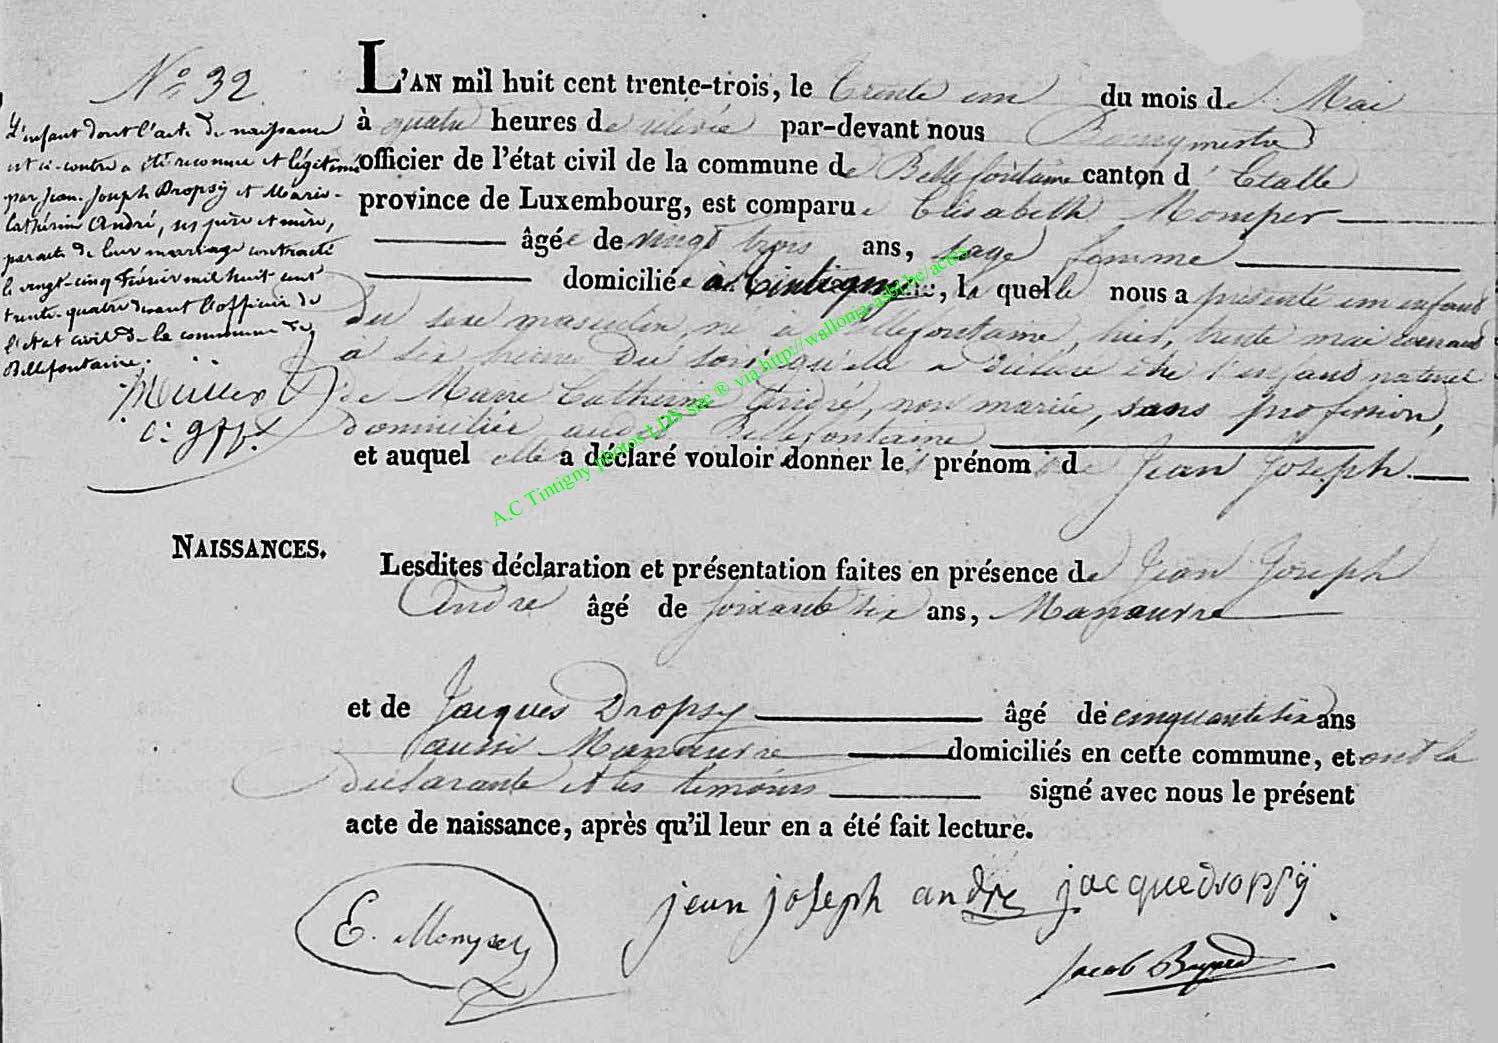 N° 32.
L'enfant dont l'acte de naissance
est ci-contre a été reconnu et légitimé
par Jean Joseph Dropsÿ et Marie-
Cathérine André, ses père et mère,
par acte de leur mariage contracté
le vingt-cinq Février mil huit cent
trente-quatre devant l'officier de
l'état civil de la commune de
Bellefontaine.
L'AN mil huit cent trente-trois, le trente un du mois de Mai
à quatre heures de relevée par-devant nous Bourgmestre
officier de l'état civil de la commune de Bellefontaine canton d'Etalle
province de Luxembourg, est comparue Elisabeth Momper
âgée de vingt trois ans, sage femme
domiciliée à Tintigny, la quelle nous a présenté un enfant
du sexe masculin, né à Bellefontaine, hier, trente mai courant
à six heures du soir qu'elle a déclaré être l'enfant naturel
de Marie Catherine André, non mariée, sans profession,
domiciliée audit Bellefontaine
et auquel elle a déclaré vouloir donner le prénom de Jean Joseph.
NAISSANCES.
Lesdites déclaration et présentation faites en présence de Jean Joseph
André âgé de soixante six ans, Manœuvre
et de Jacques Dropsy âgé de cinquante six ans
aussi Manœuvre domiciliés en cette commune, et ont la
déclarante et les témoins signé avec nous le présent
acte de naissance, après qu'il leur en a été fait lecture.
E. Momper
jean joseph andre jacque dropsÿ
Jacob
A.C Tintigny photos LDS site ® via http://wallonia-asbl.be/actes